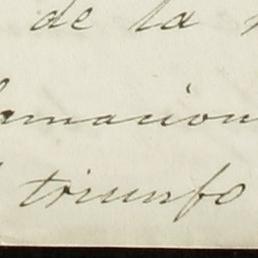 de la
amacion
triunfo